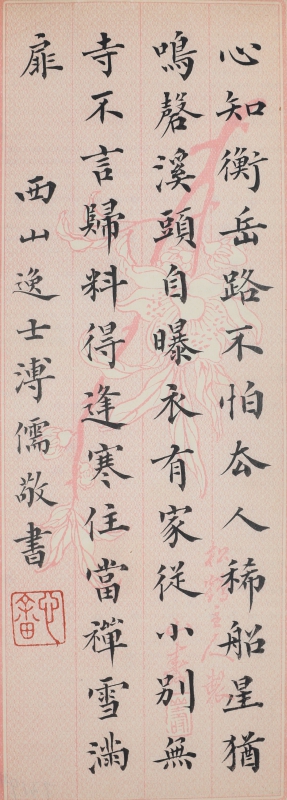 心知衡岳路不怕厺人稀船星猶
鳴磬溪頭自曝衣有家從小別無
寺不言歸料得逢寒住當禪雪滿
扉
西山逸士溥儒敬書
心畬
主人製